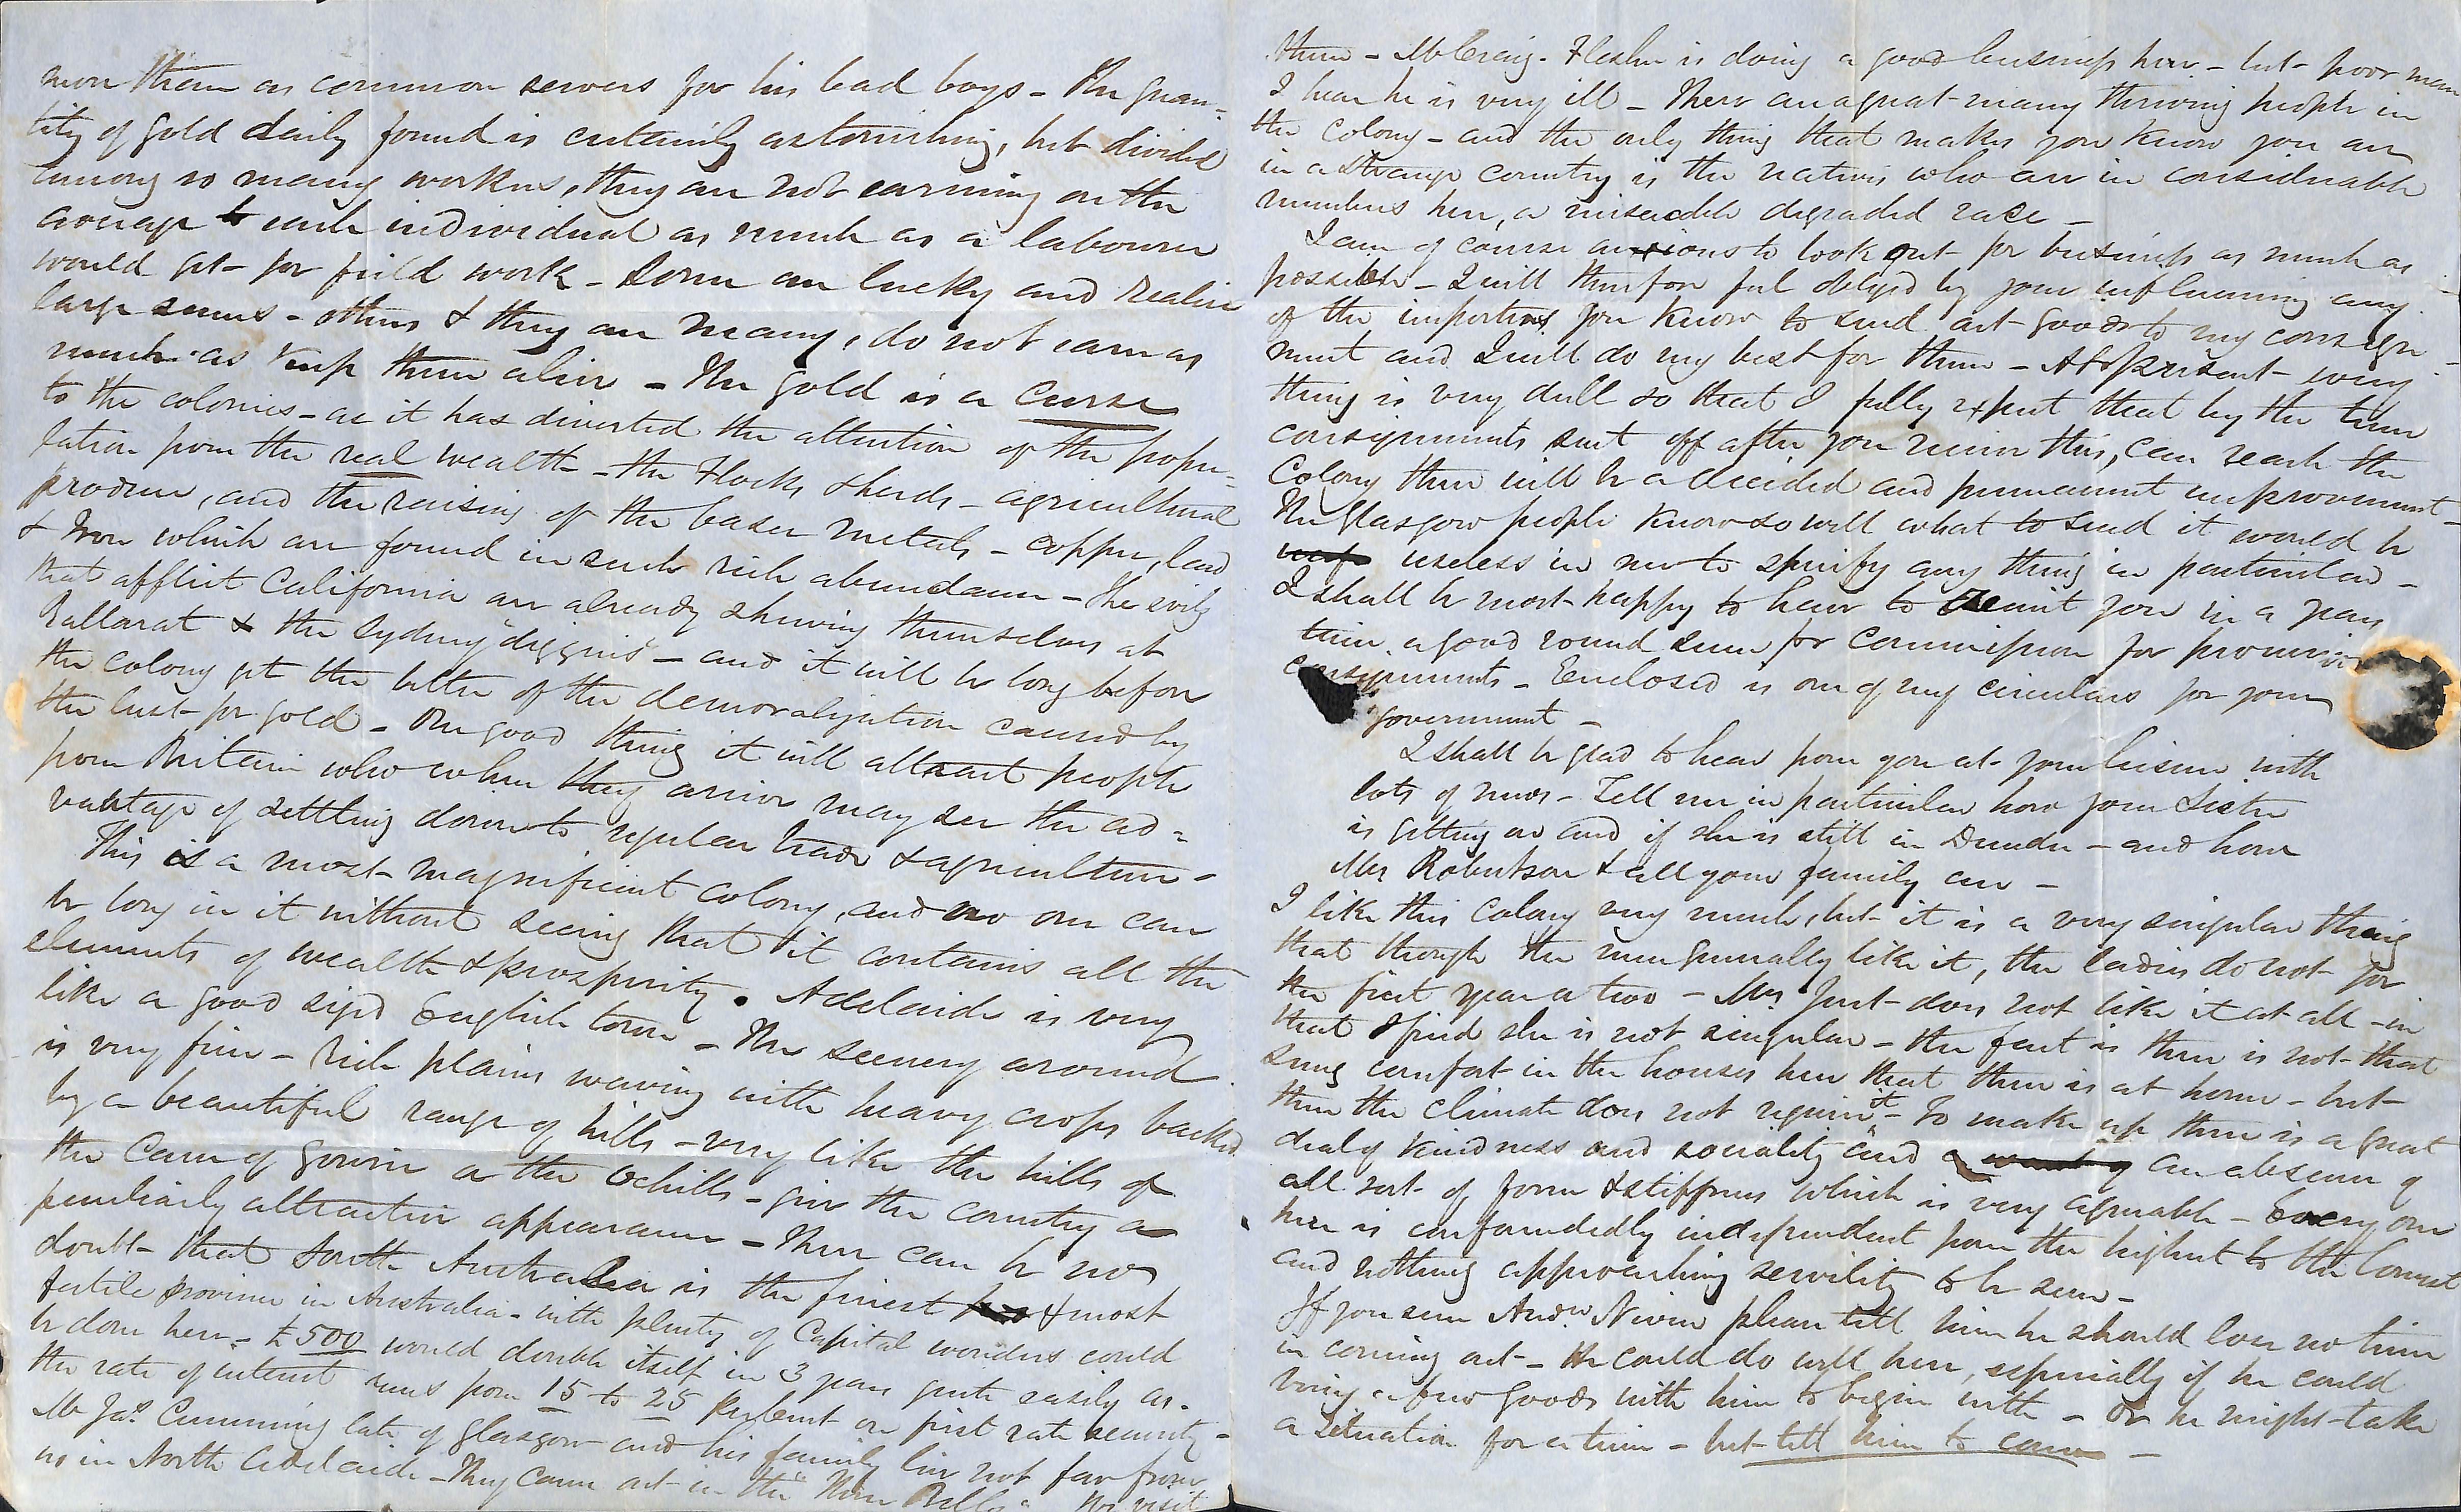 them as common sewers for his bad boys - The quan-
tity of gold daily found is certainly astonishing, but divided
among so many workers, they are not earning on the
average to each individual as much as a labourer
would get for field work - Some are lucky and realise
large sums - others & they are many, do not earn as
much as keep them alive - The gold is a Curse
to the colonies - as it has diverted the attention of the popu-
lation from the real wealth - the Flocks & herds - agricultural
produce, and the raising of the baser metals - copper, lead
& Iron which are found in such rich abundance - The evils
that afflict California are already shewing themselves at
Ballarat & the Sydney "diggins" - and it will be long before
the colony get the better of the demoralization caused by
the lust for gold - One good thing it will attract people
from Britain who when they arrive may see the ad=
vantage of settling down to regular trade & agriculture -
This is a most magnificent colony, and no one can
be long in it without seeing that it contains all the
elements of wealth & prosperity. Adelaide is very
like a good sized English town - The scenery around
is very fine - rich plains waving with heavy crops backed
by a beautiful range of hills - very like the hills of
the Carse of Gowrie or the Ochills - give the country a
peculiarly attractive appearance - There can be no
doubt that South Australia is the finest & most
fertile province in Australia - with plenty of Capital wonders could
be done here - £500 would double itself in 3 years quite easily as
the rate of interest runs from 15 to 25 per Cent on first rate security -
Mr Jas. Cumming late of Glasgow and his family live not far from
us in North Adelaide - They came out in the We visit
them - Mr Craig - Flesher is doing a good business here - but poor man
I hear he is very ill - There are a great many thriving people in
the Colony - and the only thing that makes you know you are
in a strange country is the natives who are in considerable
numbers here, a miserable degraded race -
I am of course anxious to look out for business as much as
possible - I will therefore feel obliged by your influencing any
of the importers you know to send out goods to my consign-
ment and I will do my best for them - At present every
thing is very dull so that I fully expect that by the time
consignments sent off after you receive this, can reach the
Colony there will be a decided and permanent improvement -
The Glasgow people know so well what to send it would be
useless in me to specify any thing in particular -
I shall be most happy to have to remit you in a years
time a good round sum for Commission for procuring
consignments - Enclosed is one of my circulars for your
government -
I shall be glad to hear from you at your leisure with
lots of news - Tell me in particular how your Sister
is getting on and if she is still in Dundee - and how
Mrs Robertson & all your family are -
I like this Colony very much, but it is a very singular thing
that though the men generally like it, the ladies do not for
the first year or two - Mrs Just does not like it at all - in
that I find she is not singular - the fact is there is not that
snug comfort in the houses here that there is at home - but
then the climate does not require it - To make up there is a great
deal of kindness and sociality and an absence of
all sort of form & stiffness which is very agreeable - Every one
here is confoundedly independent from the highest to the lowest
and nothing approaching servility to be seen -
If you see Andw. Niven please tell him he should lose no time
in coming out - He could do well here, especially if he could
bring a few goods with him to begin with - Or he might take
a situation for a time - but tell him to come -